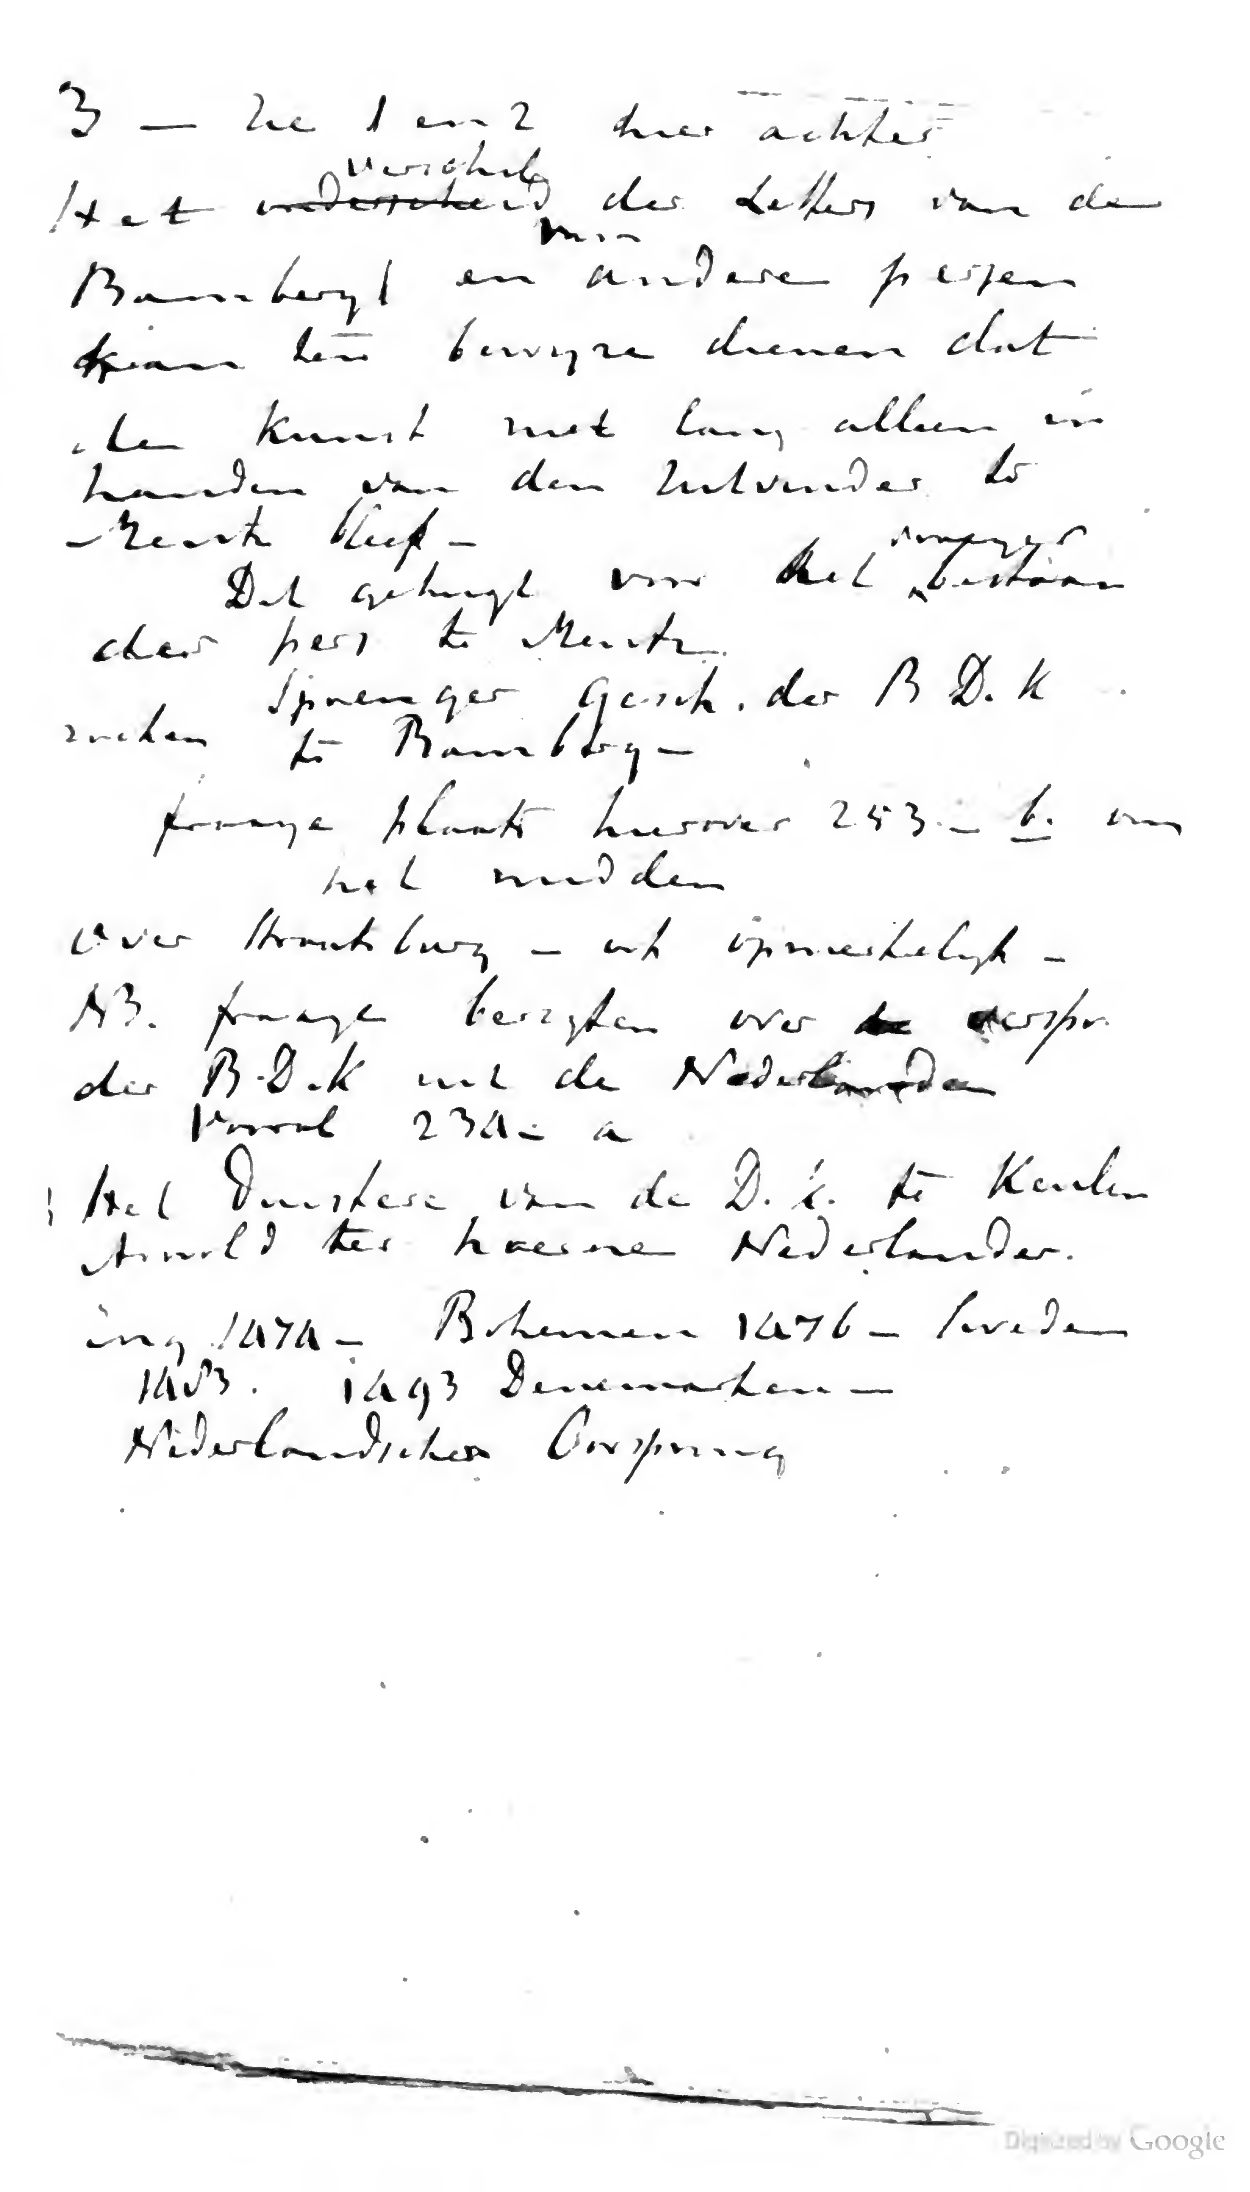 3 — Zie 1 en 2 hier achter
verschil
Het onderscheid der Letters van de
van
Bamberg en andere persen
kan ten bewyze dienen dat
den kunst niet lang alleen in
handen van den Uitvinder te
Mentz bleef —
vroeger
Dit getuigt voor het bestaan
der pers te Mentz.
Sprenger Gesch. der B D. K
zoeken te Bamberg —
fraaye plaats hierover 253 — b. in
het midden
over Straatsburg — ook opmerkelyk —
NB. fraaye berigten over de verspr.
der B. D. K uit de Nederlanden
Vooral 234 — a
Het Duistere van de D. k. te Keulen
Arnold ter hoerne Nederlander.
ing 1474 — Bohemen 1476 — Sweden
1483. 1493 Denemarken —
Nederlandschen Oorsprong
Digitized by Google